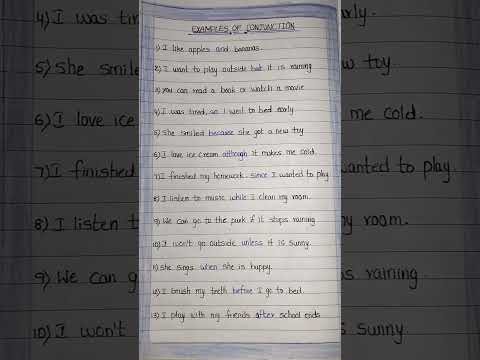 4) I was tir
5) She smile
6) I love ice
7) I finished
8) I listen t
9) We can g
10) I won't
EXAMPLES OF CONJUNCTION
1) I like apples and bananas.
2) I want to play outside but it is raining
3) you can read a book or watch a movie
4) I was tired, so I went to bed early.
5) She smiled because she got a new toy.
6) I love ice cream although it makes me cold.
7) I finished my homework since I wanted to play
8) I listen to music while I clean my room.
9) We can go to the park if it stops raining
10) I won't go outside unless it is sunny.
11) She sings when she is happy.
12) I brush my teeth before I go to bed.
13) I play with my friends after school ends
early.
new toy.
me cold.
wanted to play
y room.
raining.
is sunny.